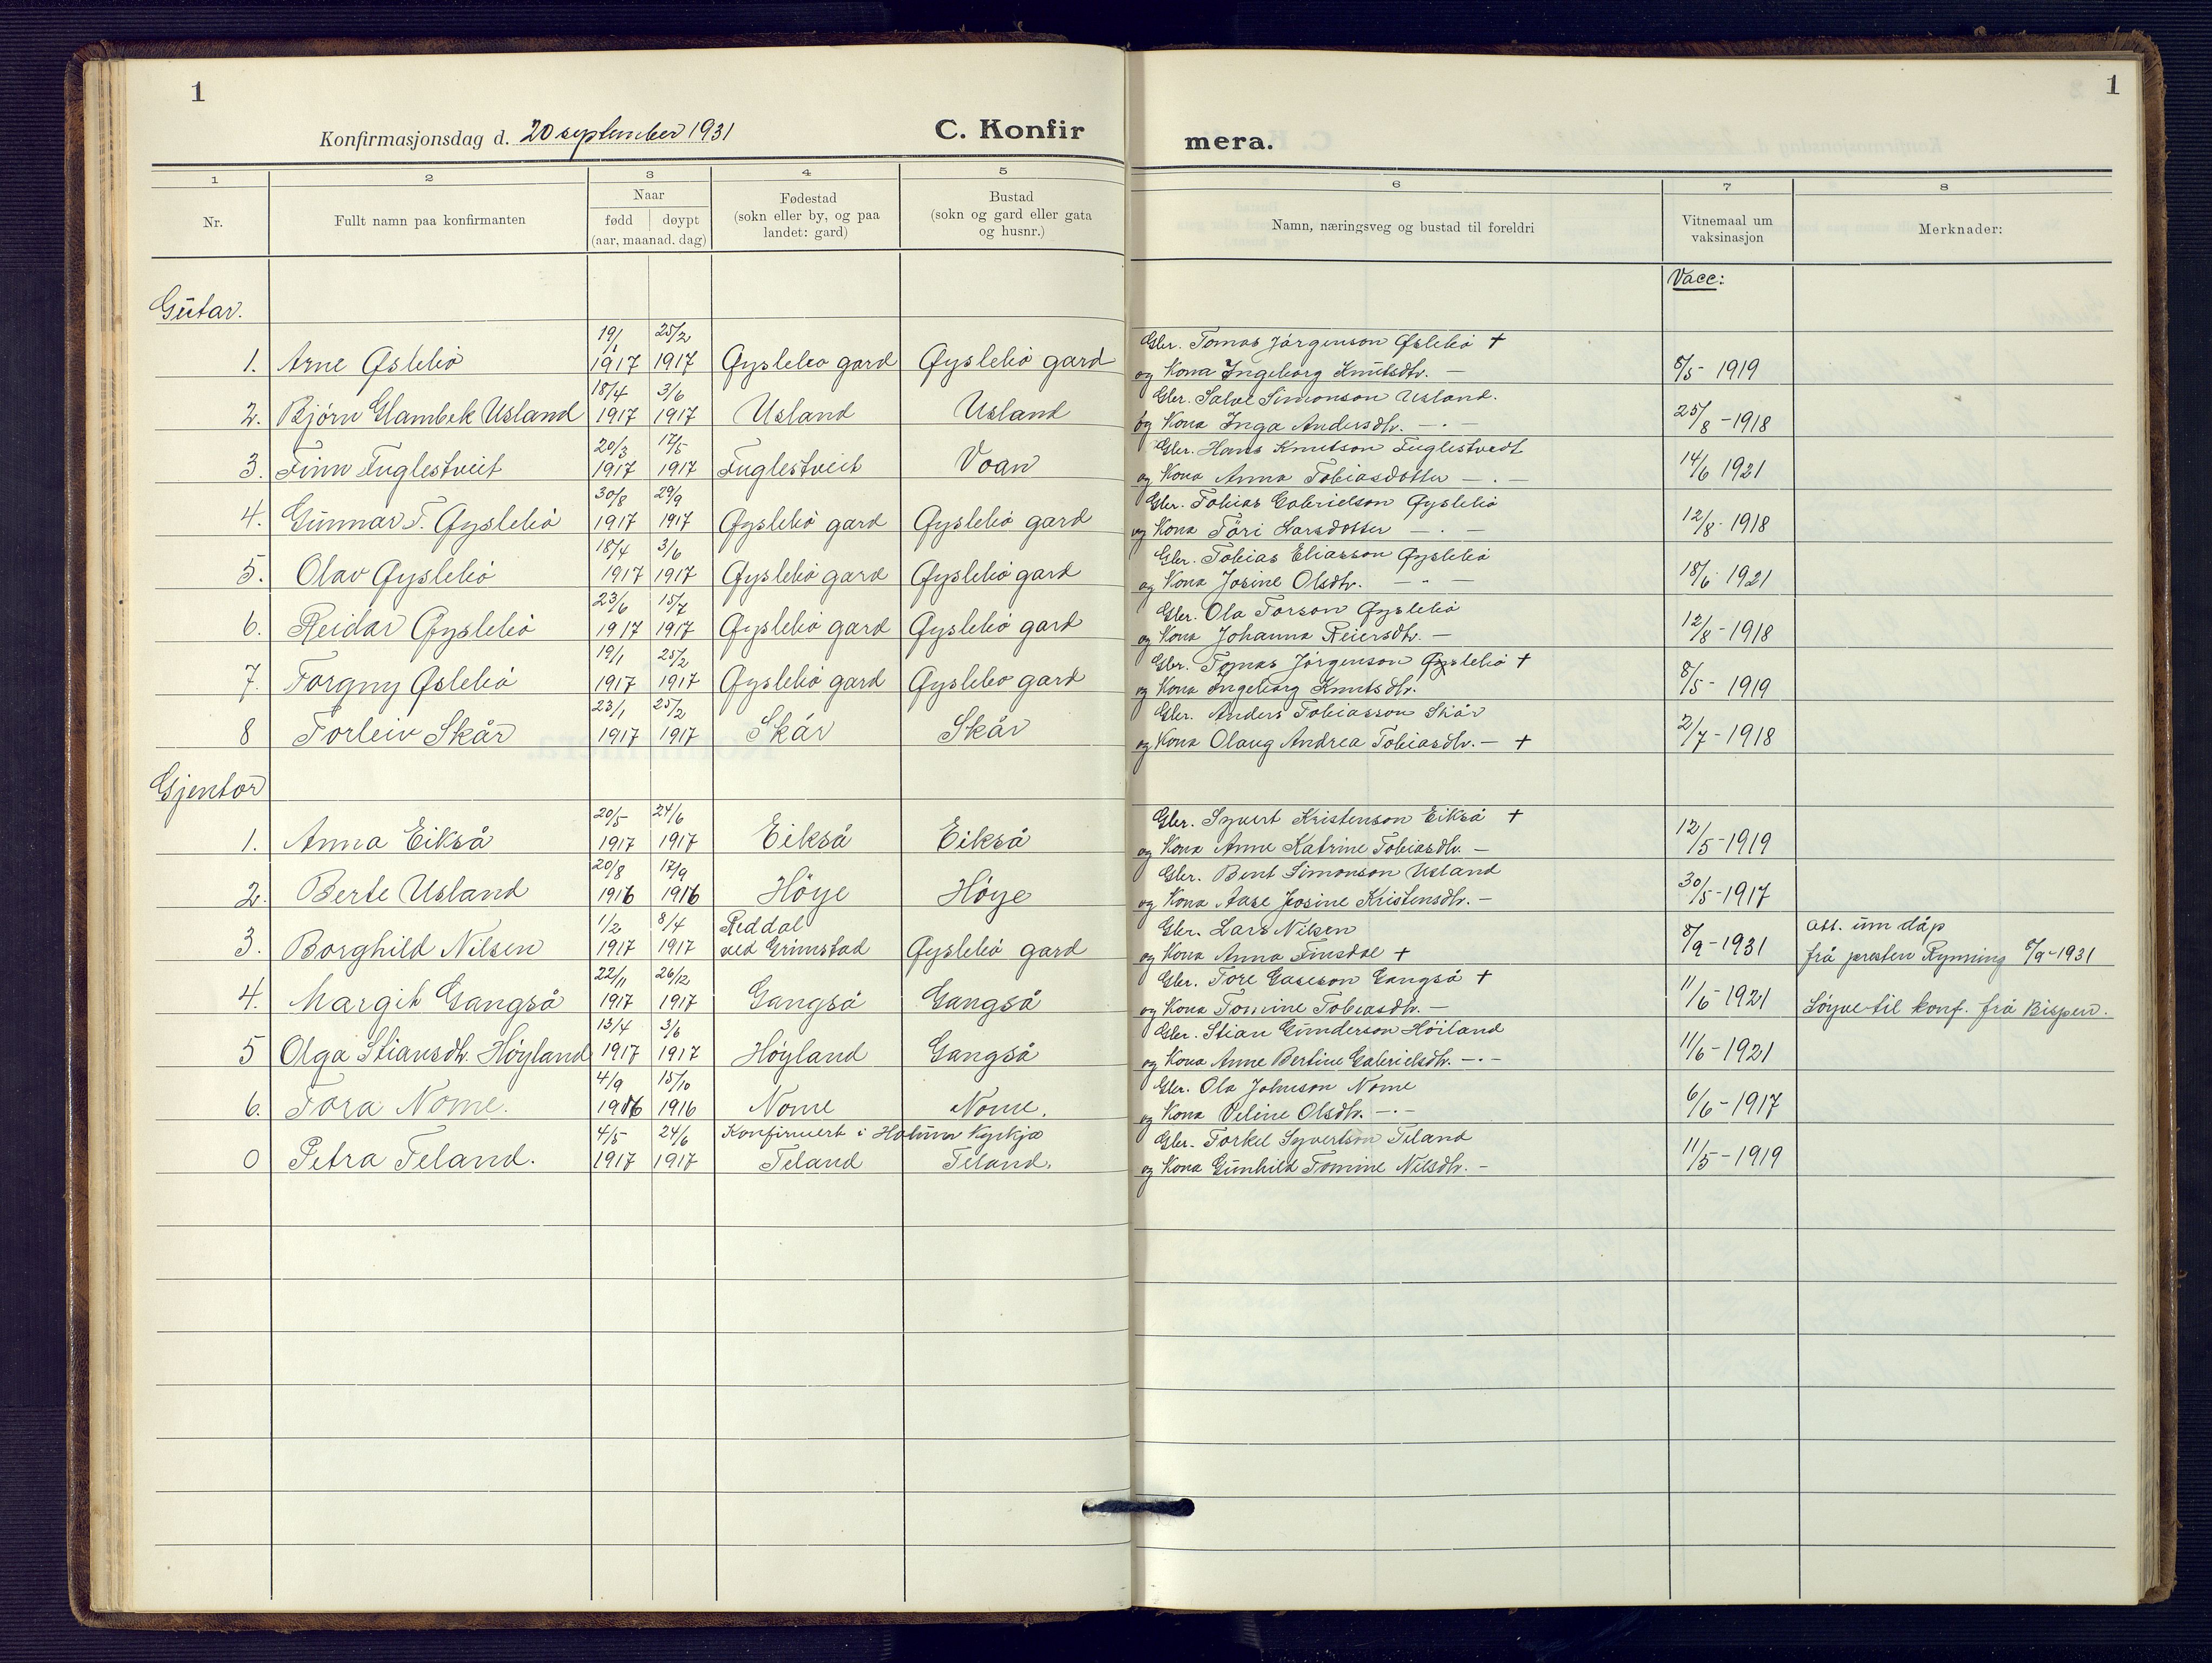 1
1
Konfirmasjonsdag d. 20 september 1931
C. Konfir
mera.
1 2 3 4 5 6 7 8
Nr.
Fullt namn paa konfirmanten
Naar
fødd døypt
(aar, maanad, dag)
Fødestad
(sokn eller by, og paa
landet: gard)
Bustad
(sokn og gard eller gata
og husnr.)
Namn, næringsveg og bustad til foreldri
Vitnemaal um
vaksinasjon
Merknader:
Vacc:
Gutar.
19/1 25/2 Gbr. Tomas Jörgenson Øslebö +
1. Arne Øslebö 1917 1917 Øyslebö gard Øyslebö gard og Kona Ingeborg Knutsdtr. — 8/5 - 1919
18/4 3/6 Gbr. Salve Simonson Usland.
2. Björn Glambek Usland 1917 1917 Usland Usland og Kona Inga Andersdtr. — · — 25/8 - 1918
20/3 17/5 Gbr. Hans Knutson Fuglestvedt
3. Finn Fuglestveit 1917 1917 Fuglestveit Voan og Kona Anna Tobiasdotter — · — 14/6 1921
30/8 29/9 Gbr. Tobias Gabrielson Øyslebö
4. Gunnar T. Øyslebö 1917 1917 Øyslebö gard Øyslebö gard og Kona Töri Larsdotter — · — 12/8 - 1918
18/4 3/6 Gbr. Tobias Eliasson Øyslebö
5. Olav Øyslebö 1917 1917 Øyslebö gard Øyslebö gard og Kona Josine Olsdtr. — " — 18/6 1921
23/6 15/7 Gbr. Ola Torson Øyslebö
6. Reidar Øyslebö 1917 1917 Øyslebö gard Øyslebö gard og Kona Johanna Reiersdtr. — 12/8 - 1918
19/1 25/2 Gbr. Tomas Jörgenson Øyslebö +
7. Torgny Øslebö 1917 1917 Øyslebö gard Øyslebö gard og Kona Ingeborg Knutsdtr. 8/5 - 1919
23/1 25/2 Gbr. Anders Tobiasson Skår
8 Torleiv Skår 1917 1917 Skår Skår og Kona Olaug Andrea Tobiasdtr. — + 2/7 - 1918
Gjentor
20/5 24/6 Gbr. Syvert Kristenson Eikså +
1. Anna Eikså 1917 1917 Eikså Eikså og Kona Anne Katrine Tobiasdtr. — 12/5 - 1919
20/8 17/9 Gbr. Bent Simonson Usland
2. Berte Usland 1916 1916 Höye Höye og Kona Aase Josine Kristensdtr. — 30/5 - 1917
1/2 8/4 Reddal Gbr. Lars Nilsen Att. um dåp
3. Borghild Nilsen 1917 1917 ved Grimstad Øyslebö gard og Kona Anna Finsdal + 8/9 - 1931 frå presten Rynning 8/9 - 1931
22/11 26/12 Gbr. Tore Gaseson Gangså +
4. Margit Gangså 1917 1917 Gangså Gangså og Kona Tomine Tobiasdtr. — 11/6 - 1921 Löyve til konf. frå Bispen.
13/4 3/6 Gbr. Stian Gunderson Höiland
5 Olga Stiansdtr. Höyland 1917 1917 Höyland Gangså og Kona Anne Bertine Gabrielsdtr. — · — 11/6 - 1921
4/9 15/10 Gbr. Ola Johnson Nome
6. Tora Nome. 1916 1916 Nome Nome. og Kona Veline Olsdtr. — · — 6/6 - 1917
4/5 24/6 Konfirmert i Holum Kyrkja Gbr. Torkel Syvertson Teland
0 Petra Teland. 1917 1917 Teland Teland. og Kona Gunhild Tomine Nilsdtr. — 11/5 - 1919